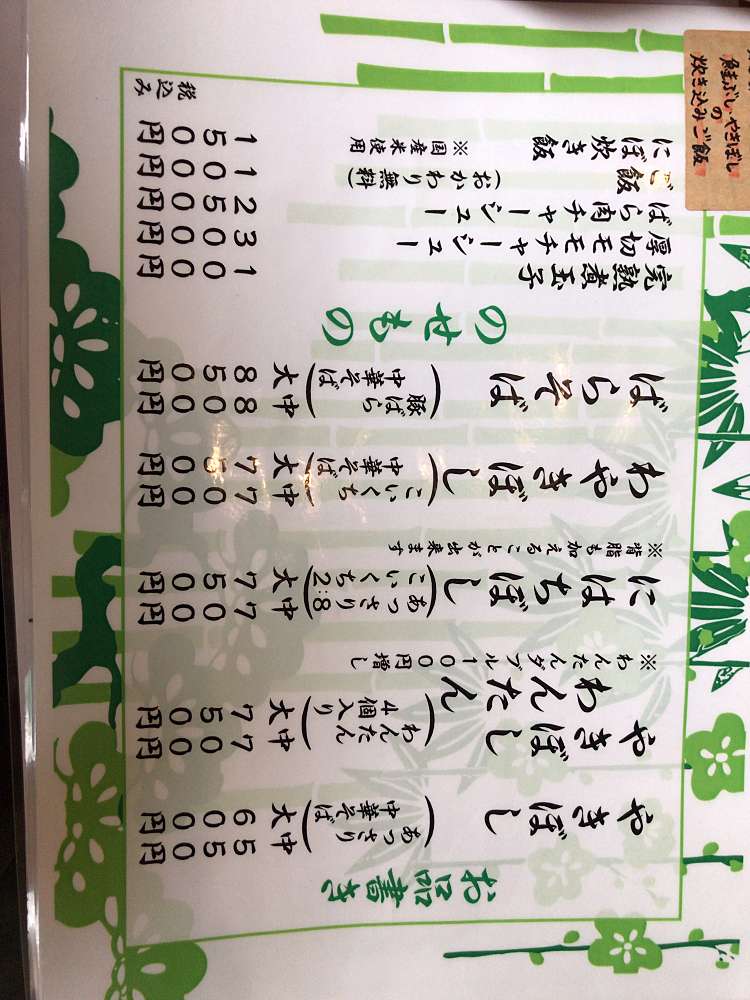 お品書き
やきぼし（あっさり中華そば）中 550円
大 600円
わんたん
やきぼし（わんたん4個入り）中 700円
大 750円
※わんたんダブル100円増し
にはちぼし（あっさり こいくち 2:8）中 700円
大 750円
※背脂も加えることが出来ます
わやきぼし（こいくち中華そば）中 700円
大 750円
ばらそば（豚ばら中華そば）中 800円
大 850円
のせもの
完熟煮玉子 100円
厚切モモチャーシュー 300円
ばら肉チャーシュー 250円
ご飯（おかわり無料）100円
にぼ炊き飯 ※国産米使用 150円
税込み
鮭ぶし・やきぼし
の
炊き込みご飯